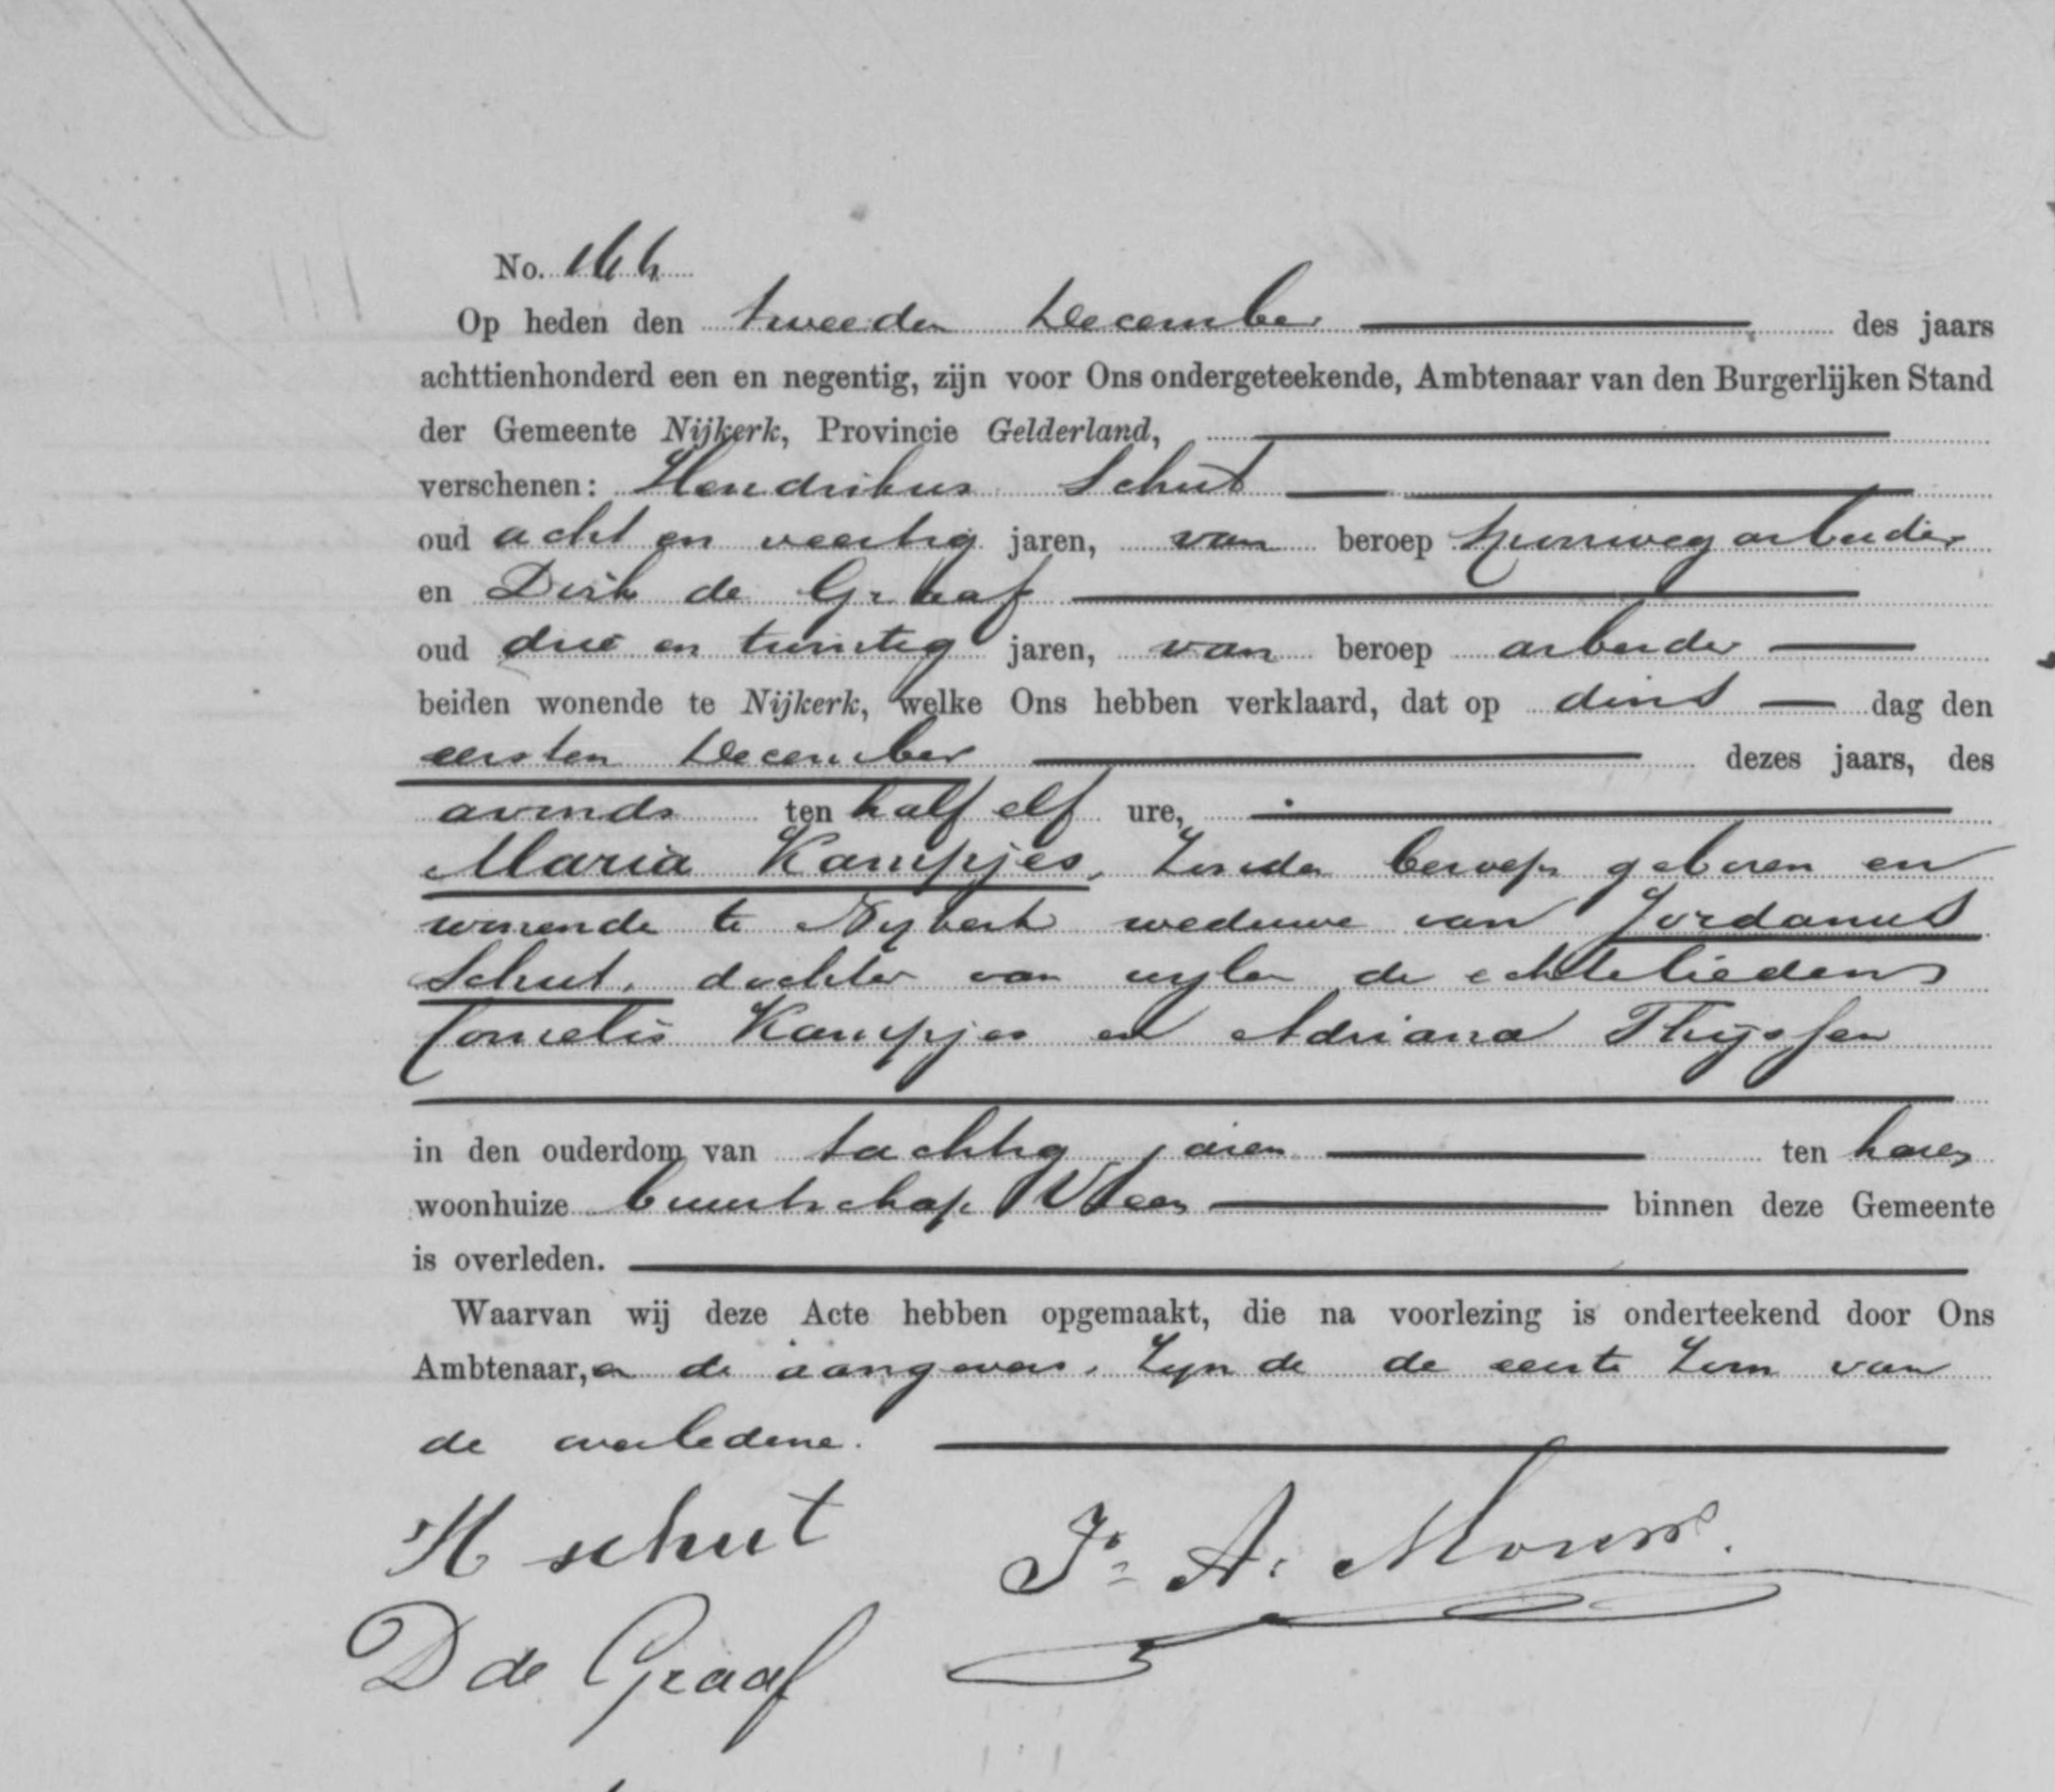 No. 164
Op heden den tweeden December des jaars
achttienhonderd een en negentig, zijn voor Ons ondergeteekende, Ambtenaar van den Burgerlijken Stand
der Gemeente Nijkerk, Provincie Gelderland,
verschenen: Hendrikus Schut
oud acht en veertig jaren, van beroep spoorwegarbeider
en Dirk de Graaf
oud drie en twintig jaren, van beroep arbeider
beiden wonende te Nijkerk, welke Ons hebben verklaard, dat op dins dag den
eersten December dezes jaars, des
avonds ten half elf ure,
Maria Kampjes, zonder beroep geboren en
wonende te Nykerk weduwe van Jordanus
Schut, dochter van wylen de echtelieden
Cornelis Kampjes en Adriana Thijssen
in den ouderdom van tachtig jaren ten haren
woonhuize buurtschap Veen binnen deze Gemeente
is overleden.
Waarvan wij deze Acte hebben opgemaakt, die na voorlezing is onderteekend door Ons
Ambtenaar, en de aangevers, zynde de eerste zoon van
de overledene.
H schut
D de Graaf